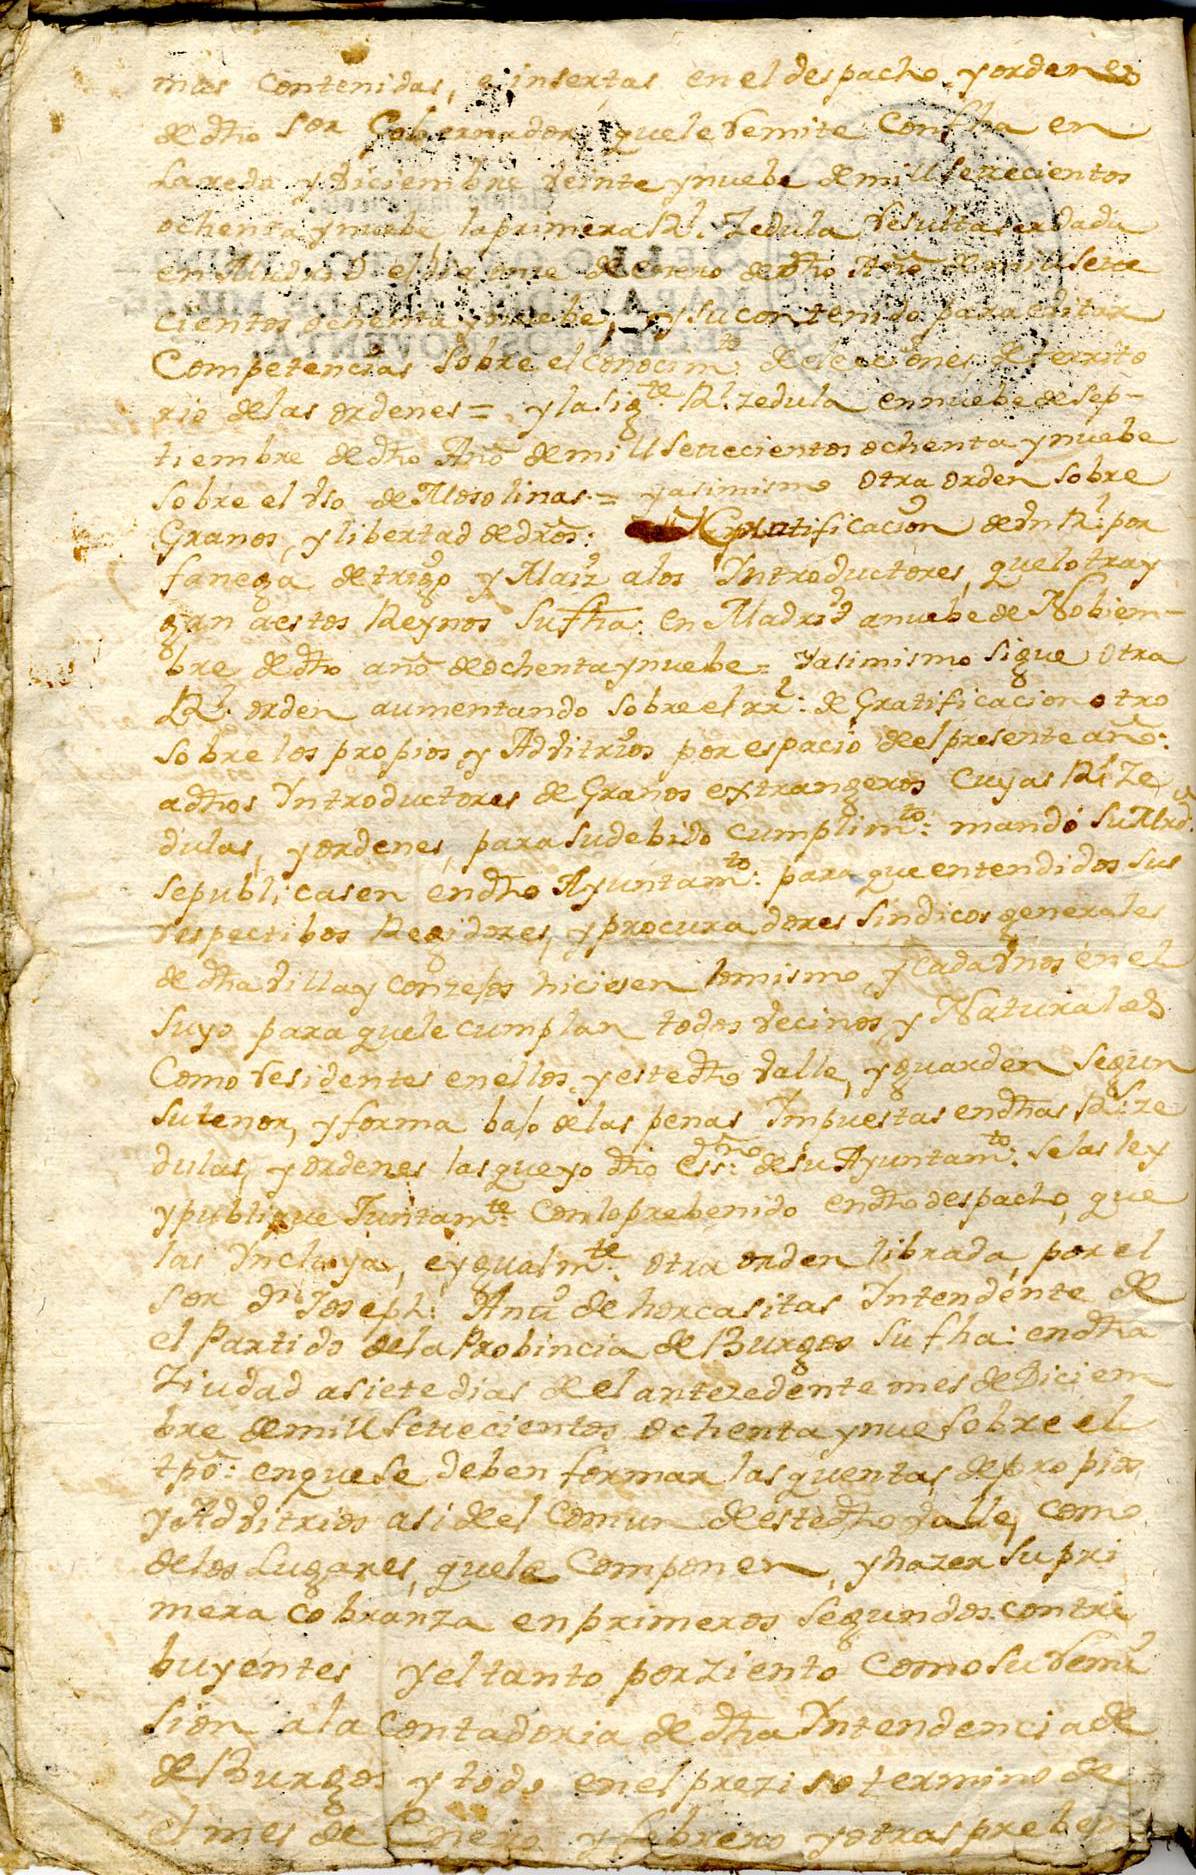 mas contenidas, e insertas en el despacho, y ordenes
de dho Sor Gobernador que le remite con fha en
Laredo y Diciembre veinte y nuebe de mill setecientos
ochenta y nuebe, la primera Rl. Zedula resulta ser dada
en Madrid el dia onze de Enero de dho Año de mill sete
cientos ochenta y nuebe, y su contenido para evitar
Competencias sobre el Conocimto de elecciones de territo
rio de las ordenes = y la sigte Rl. zedula en nuebe de Sep-
tiembre de dho Año de mill setecientos ochenta y nuebe
sobre el vso de Mosolinas = y asimismo otra orden sobre
Granos, y libertad de dros: Gratificacion de vn Rl. por
fanega de trigo y Maiz a los Yntroductores, que lo tray
gan a estos Reynos su fha: en Madrid a nuebe de Nobiem-
bre de dho año de ochenta y nuebe = Y asimismo sigue otra
Rl. orden aumentando sobre el rl: de Gratificacion otro
sobre los propios, y Advitrios por espacio de el presente año:
a dhos Yntroductores de Granos extrangeros cuyas Rs. Ze
dulas, y ordenes, para su debido cumplimto: mandó su Mrd
se publicasen en dho Ayuntamto: para que entendidos sus
respectibos Regidores, y procuradores sindicos generales
de dha villa y conzejos hiciesen lo mismo, y cada vnos en el
suyo para que le cumplan todos vecinos, y Naturales
Como residentes en ellos, y este dho valle, y guarden segun
su tenor, y forma bajo de las penas Impuestas en dhas Rs. Ze
dulas, y ordenes, las que yo dho Essno: de su Ayuntamto: se las ley
y publique Juntamte: con lo prebenido en dho despacho, que
las Yncluya, e ygualmte: otra orden librada, por el
Sor Dn Joseph: Anto de horcasitas Yntendente de
el Partido de la Probincia de Burgos su fha: en dha
Ziudad a siete dias de el antezedente mes de Diciem
bre de mill setecientos ochenta y nue sobre el
tpõ: en que se deben formar las quentas, de propios
y Advitrios asi de el Comun de este dho valle, como
de los Lugares, que le Componen, y hazer su pri
mera cobranza en primeros segundos contri
buyentes y el tanto por ziento como su remi
sion a la Contadoria de dha Yntendencia de
de Burgos y todo en el prezi so termino de
el mes de Enero y febrero y otras preben